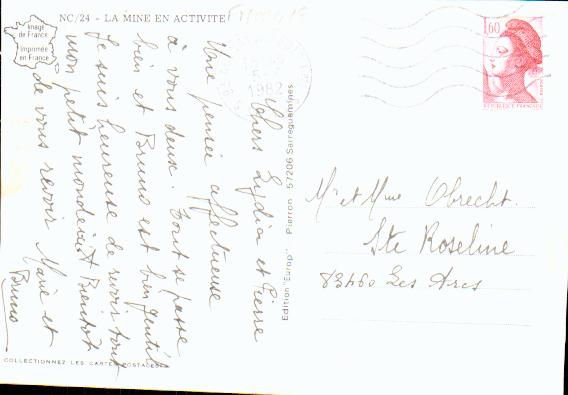 NC/24 - LA MINE EN ACTIVITE
Image
de France
Imprimée
en France
1982
1,60
REPUBLIQUE FRANÇAISE
Chers Lydia et Pierre
Une pensée affectueuse
à vous deux. Tout se passe
bien et Bruno est bien gentil
Je suis heureuse de revoir tout
mon petit monde. Bientôt
de vous revoir Marie et
Bruno
Edition "Europ" Pierron - 57206 Sarreguemines
Mr et Mme Obrecht.
Ste Roseline
83460 Les Arcs
COLLECTIONNEZ LES CARTES POSTALES